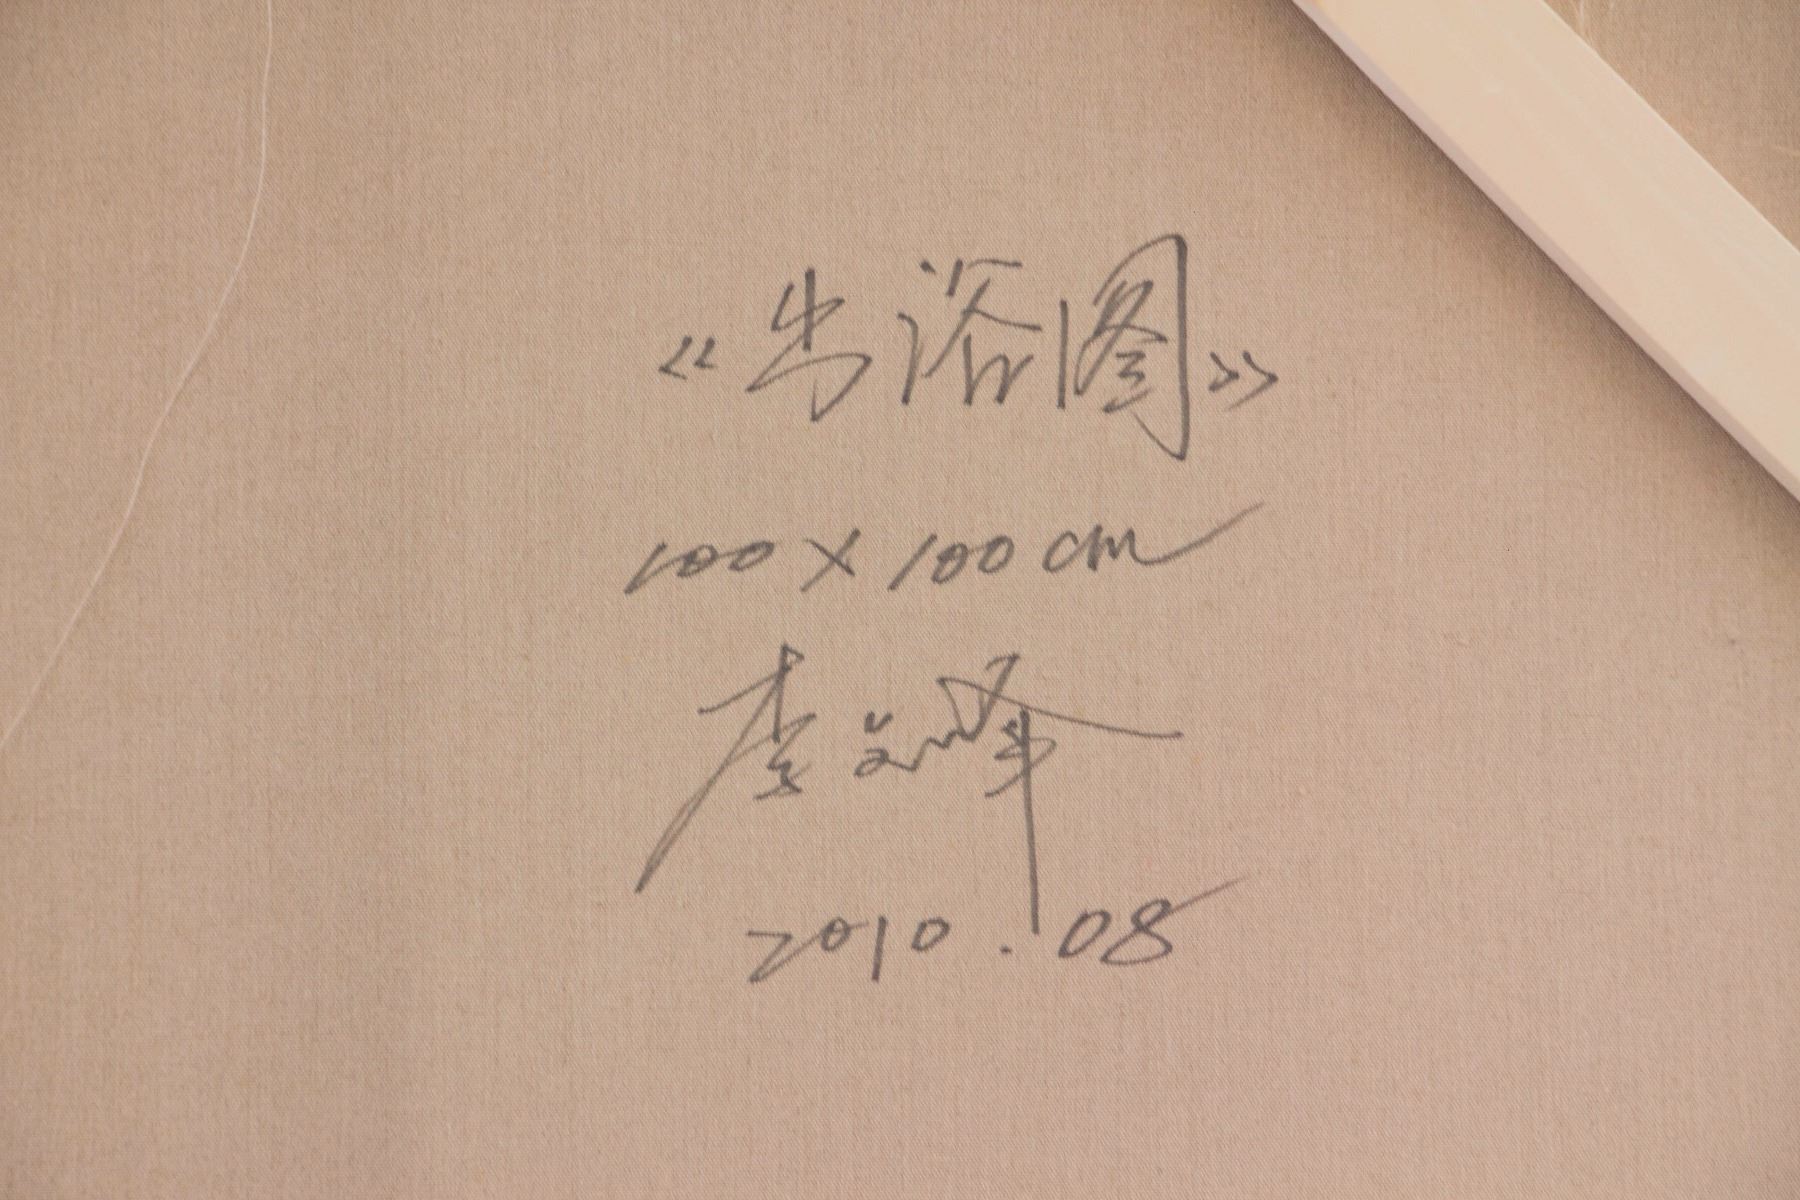 《出浴图》
100×100cm
李
2010.08